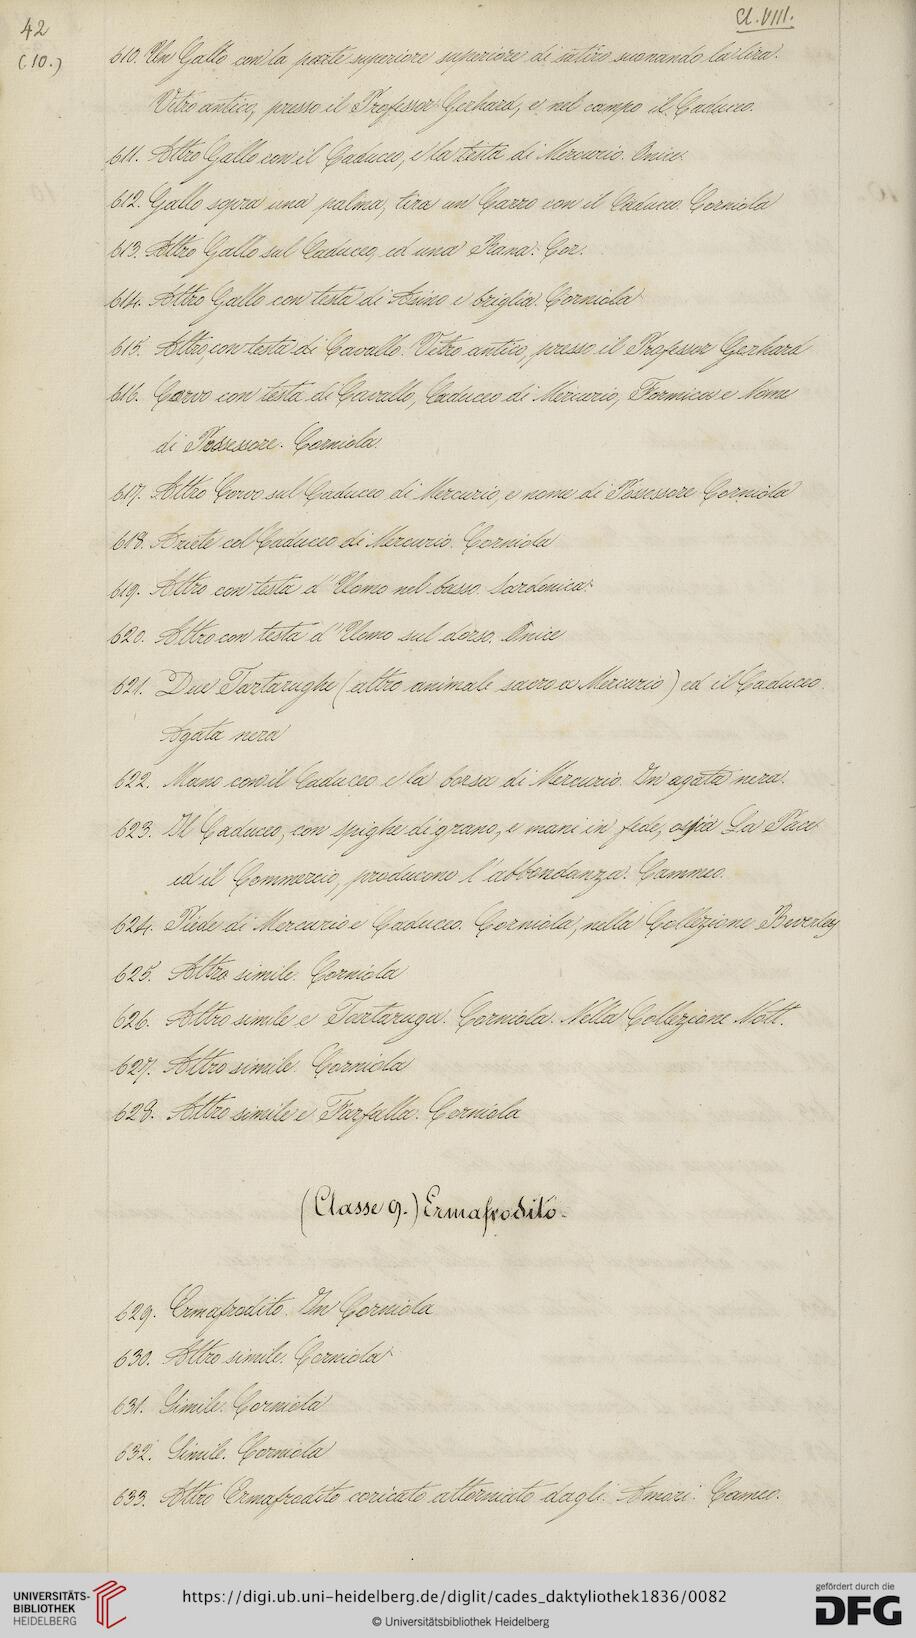 42
(10.)
Cl. VIII.
610. Un Gallo con la parte superiore superiore di satiro suonando la lira.
Vetro antico, presso il Professor Gerhard, e nel campo il Caduceo.
611. Altro Gallo con il Caduceo, e la testa di Mercurio. Onice.
612. Gallo sopra una palma, tira un Carro con il Caduceo. Corniola
613. Altro Gallo sul Caduceo, ed una Rana. Cor.
614. Altro Gallo con testa di Asino e briglia. Corniola
615. Altro, con testa di Cavallo. Vetro antico, presso il Professor Gerhard
616. Corvo con testa di Cavallo, Caduceo di Mercurio, Formica e Nome
di Possessore. Corniola.
617. Altro Corvo sul Caduceo di Mercurio, e nome di Possessore Corniola
618. Ariete col Caduceo di Mercurio. Corniola
619. Altro con testa d'Uomo nel basso. Sardonica.
620. Altro con testa d'Uomo sul dorso. Onice
621. Due Tartarughe (altro animale sacro a Mercurio) ed il Caduceo.
Agata nera
622. Mano con il Caduceo e la borsa di Mercurio. In agata nera.
623. Il Caduceo, con spighe di grano, e mani in fede, ossia La Pace
ed il Commercio, producono l'abbondanza. Cammeo.
624. Piede di Mercurio e Caduceo. Corniola, nella Collezione Beverley
625. Altro simile. Corniola
626. Altro simile e Tartaruga. Corniola. Nella Collezione Nott.
627. Altro simile. Corniola
628. Altro simile e Farfalla. Corniola
(Classe 9.) Ermafrodito.
629. Ermafrodito. In Corniola
630. Altro simile. Corniola
631. Simile. Corniola
632. Simile. Corniola
633. Altro Ermafrodito coricato attorniato dagli Amori. Cameo.
UNIVERSITÄTS-
BIBLIOTHEK
HEIDELBERG
https://digi.ub.uni-heidelberg.de/diglit/cades_daktyliothek1836/0082
© Universitätsbibliothek Heidelberg
gefördert durch die
DFG